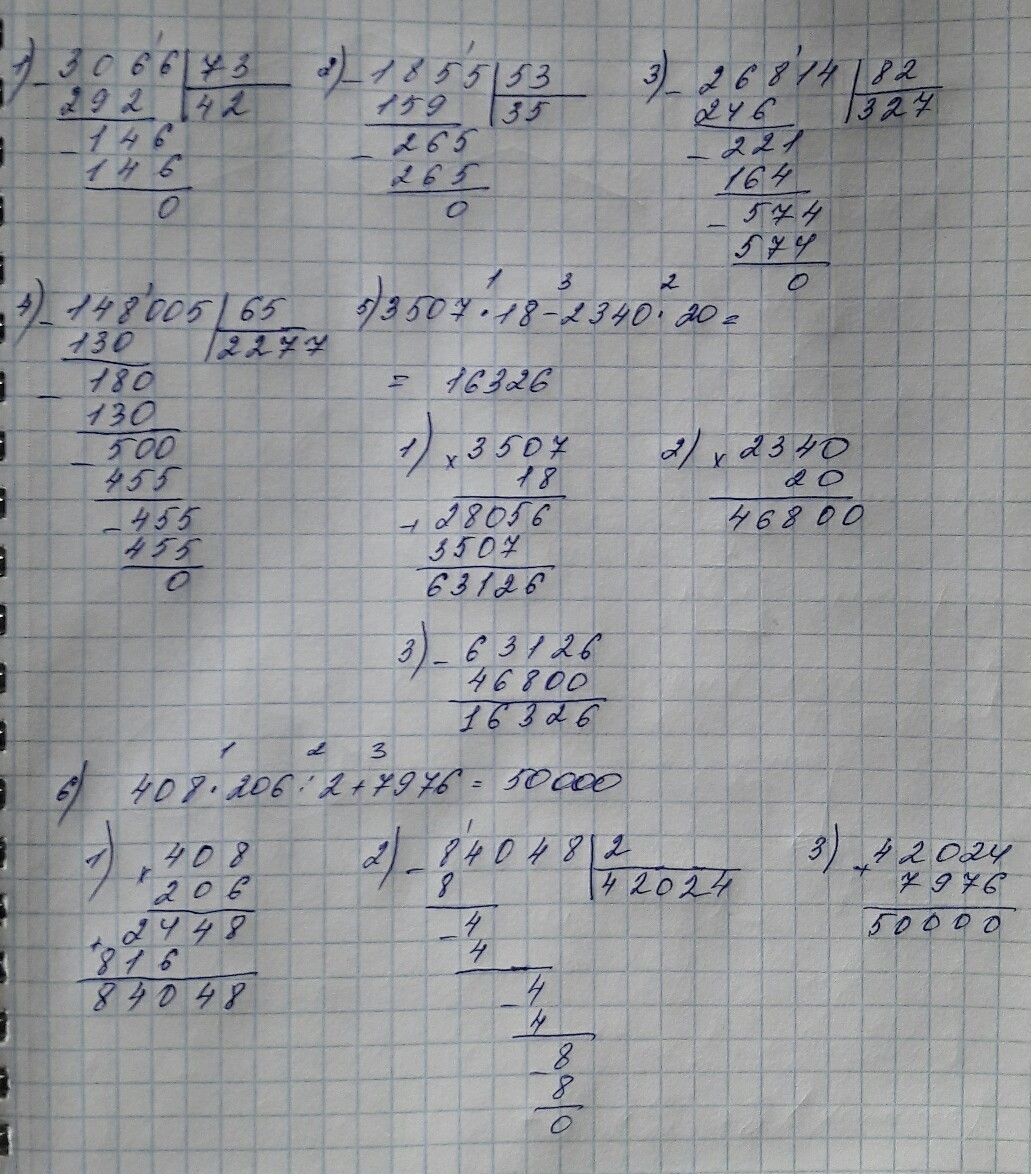 1) - 3066 | 73
292 | 42
- 146
146
0
2) - 1855 | 53
159 | 35
- 265
265
0
3) - 26814 | 82
246 | 327
- 221
164
- 574
574
0
4) - 148005 | 65
130 | 2277
- 180
130
- 500
455
- 455
455
0
1 3 2
5) 3507 · 18 - 2340 · 20 =
= 16326
1) x 3507
18
+ 28056
3507
63126
2) x 2340
20
46800
3) - 63126
46800
16326
1 2 3
6) 408 · 206 : 2 + 7976 = 50000
1) x 408
206
+ 2448
816
84048
2) - 84048 | 2
8 | 42024
- 4
4
- 4
4
- 8
8
0
3) + 42024
7976
50000